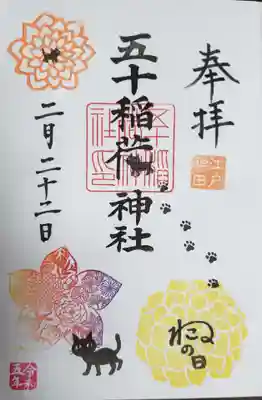 奉拝
江戸
神田
五十稲荷神社
二月二十二日
ねこの日
令和
五年